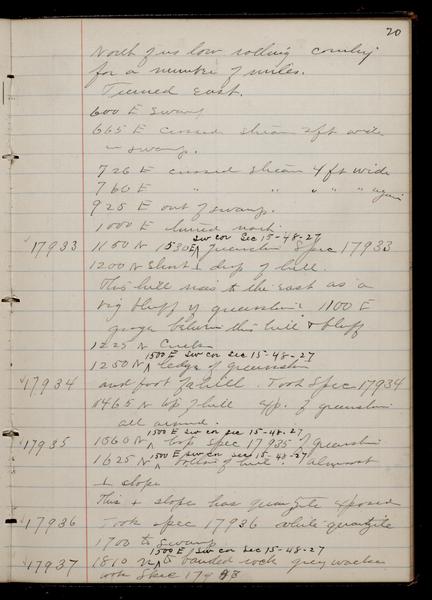 20
North of us low rolling country
for a number of miles.
Turned East.
600 E swamp
665 E crossed stream 2ft wide
in swamp.
726 E crossed stream 4 ft wide
760 E " " " " " again
925 E out of swamp.
1000 E turned north.
SW cor Sec 15-48-27
17933 1150 N 1530 E greenston Spec 17933
1200 N short drop of hill.
This hill rises to the east as a
big bluff of greenston 1100 E
gorge between this hill & bluff
1225 N Creek
1500 E SW cor Sec 15-48-27
1250 N ledge of greenston
17934 and foot of hill. Took Spec 17934
1465 N top of hill exp. of greenston
all around.
1500 E SW cor sec 15-48-27
17935 1560 N top spec 17935 of greenston
1500 E SW cor sec 15-48-27
1625 N bottom of hill. almost
slope
This slope has quartzite exposed
17936 Took spec 17936 white quartzite
1700 to swamp
1500 E SW cor Sec 15-48-27
17937 1810 N to banded rock greywacke
took Spec